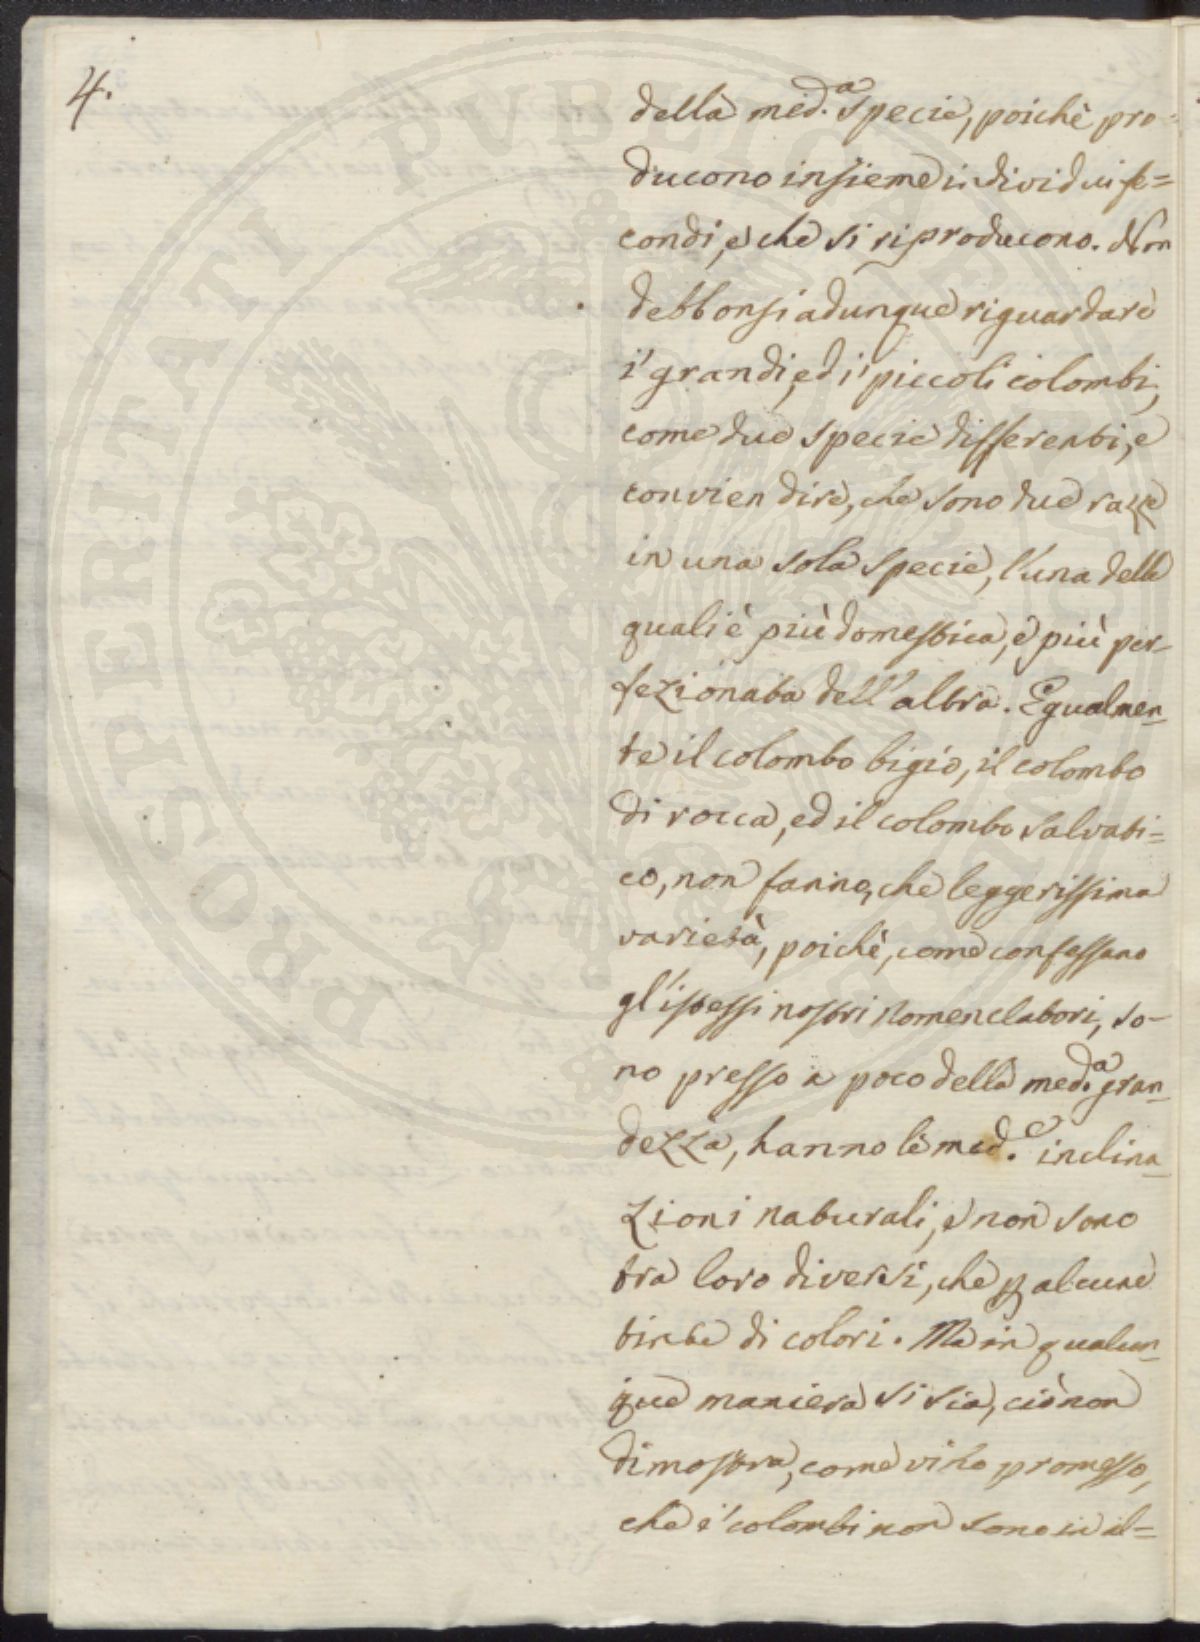 4.
della med.ª specie, poichè pro=
ducono insieme individui fe=
condi, e che si riproducono. Non
debbonsi adunque riguardare
i' grandi, ed i' piccoli colombi,
come due specie differenti, e
convien dire, che sono due razze
in una sola specie, l'una delle
quali è più domestica, e più per-
fezionata dell'altra. Egualmen-
te il colombo bigio, il colombo
di rocca, ed il colombo salvati=
co, non fanno, che leggerissima
varietà, poichè, come confessano
gl'istessi nostri Nomenclatori, so-
no presso a poco della med.ª gran-
dezza, hanno le med.e inclina-
zioni naturali, e non sono
tra loro diversi, che p alcune
tinte di colori. Ma in qualun-
que maniera si sia, ciò non
dimostra, come vi ho promesso,
che i' colombi non sono in il=
PROSPERITATI PVBLICAE